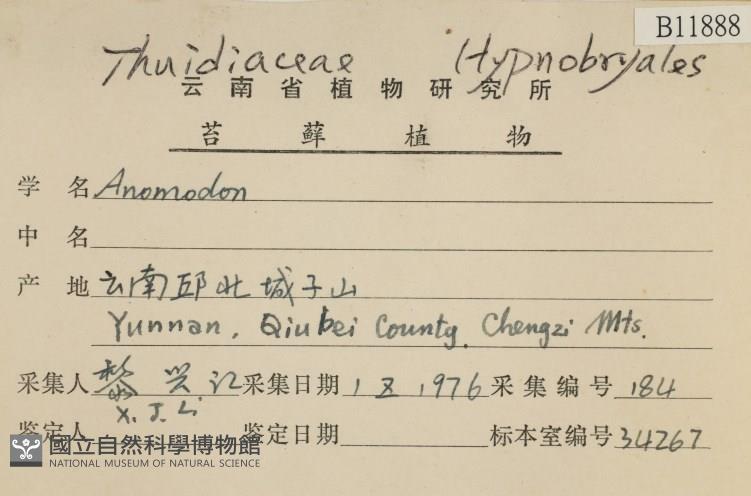 B11888
Thuidiaceae Hypnobryales
云南省植物研究所
苔藓植物
学名 Anomodon
中名
产地 云南邱北城子山
Yunnan, Qiubei County. Chengzi Mts.
采集人 黎兴江 采集日期 1 X 1976 采集编号 184
X. J. Li
鉴定人 鉴定日期 标本室编号 34267
國立自然科學博物館
NATIONAL MUSEUM OF NATURAL SCIENCE